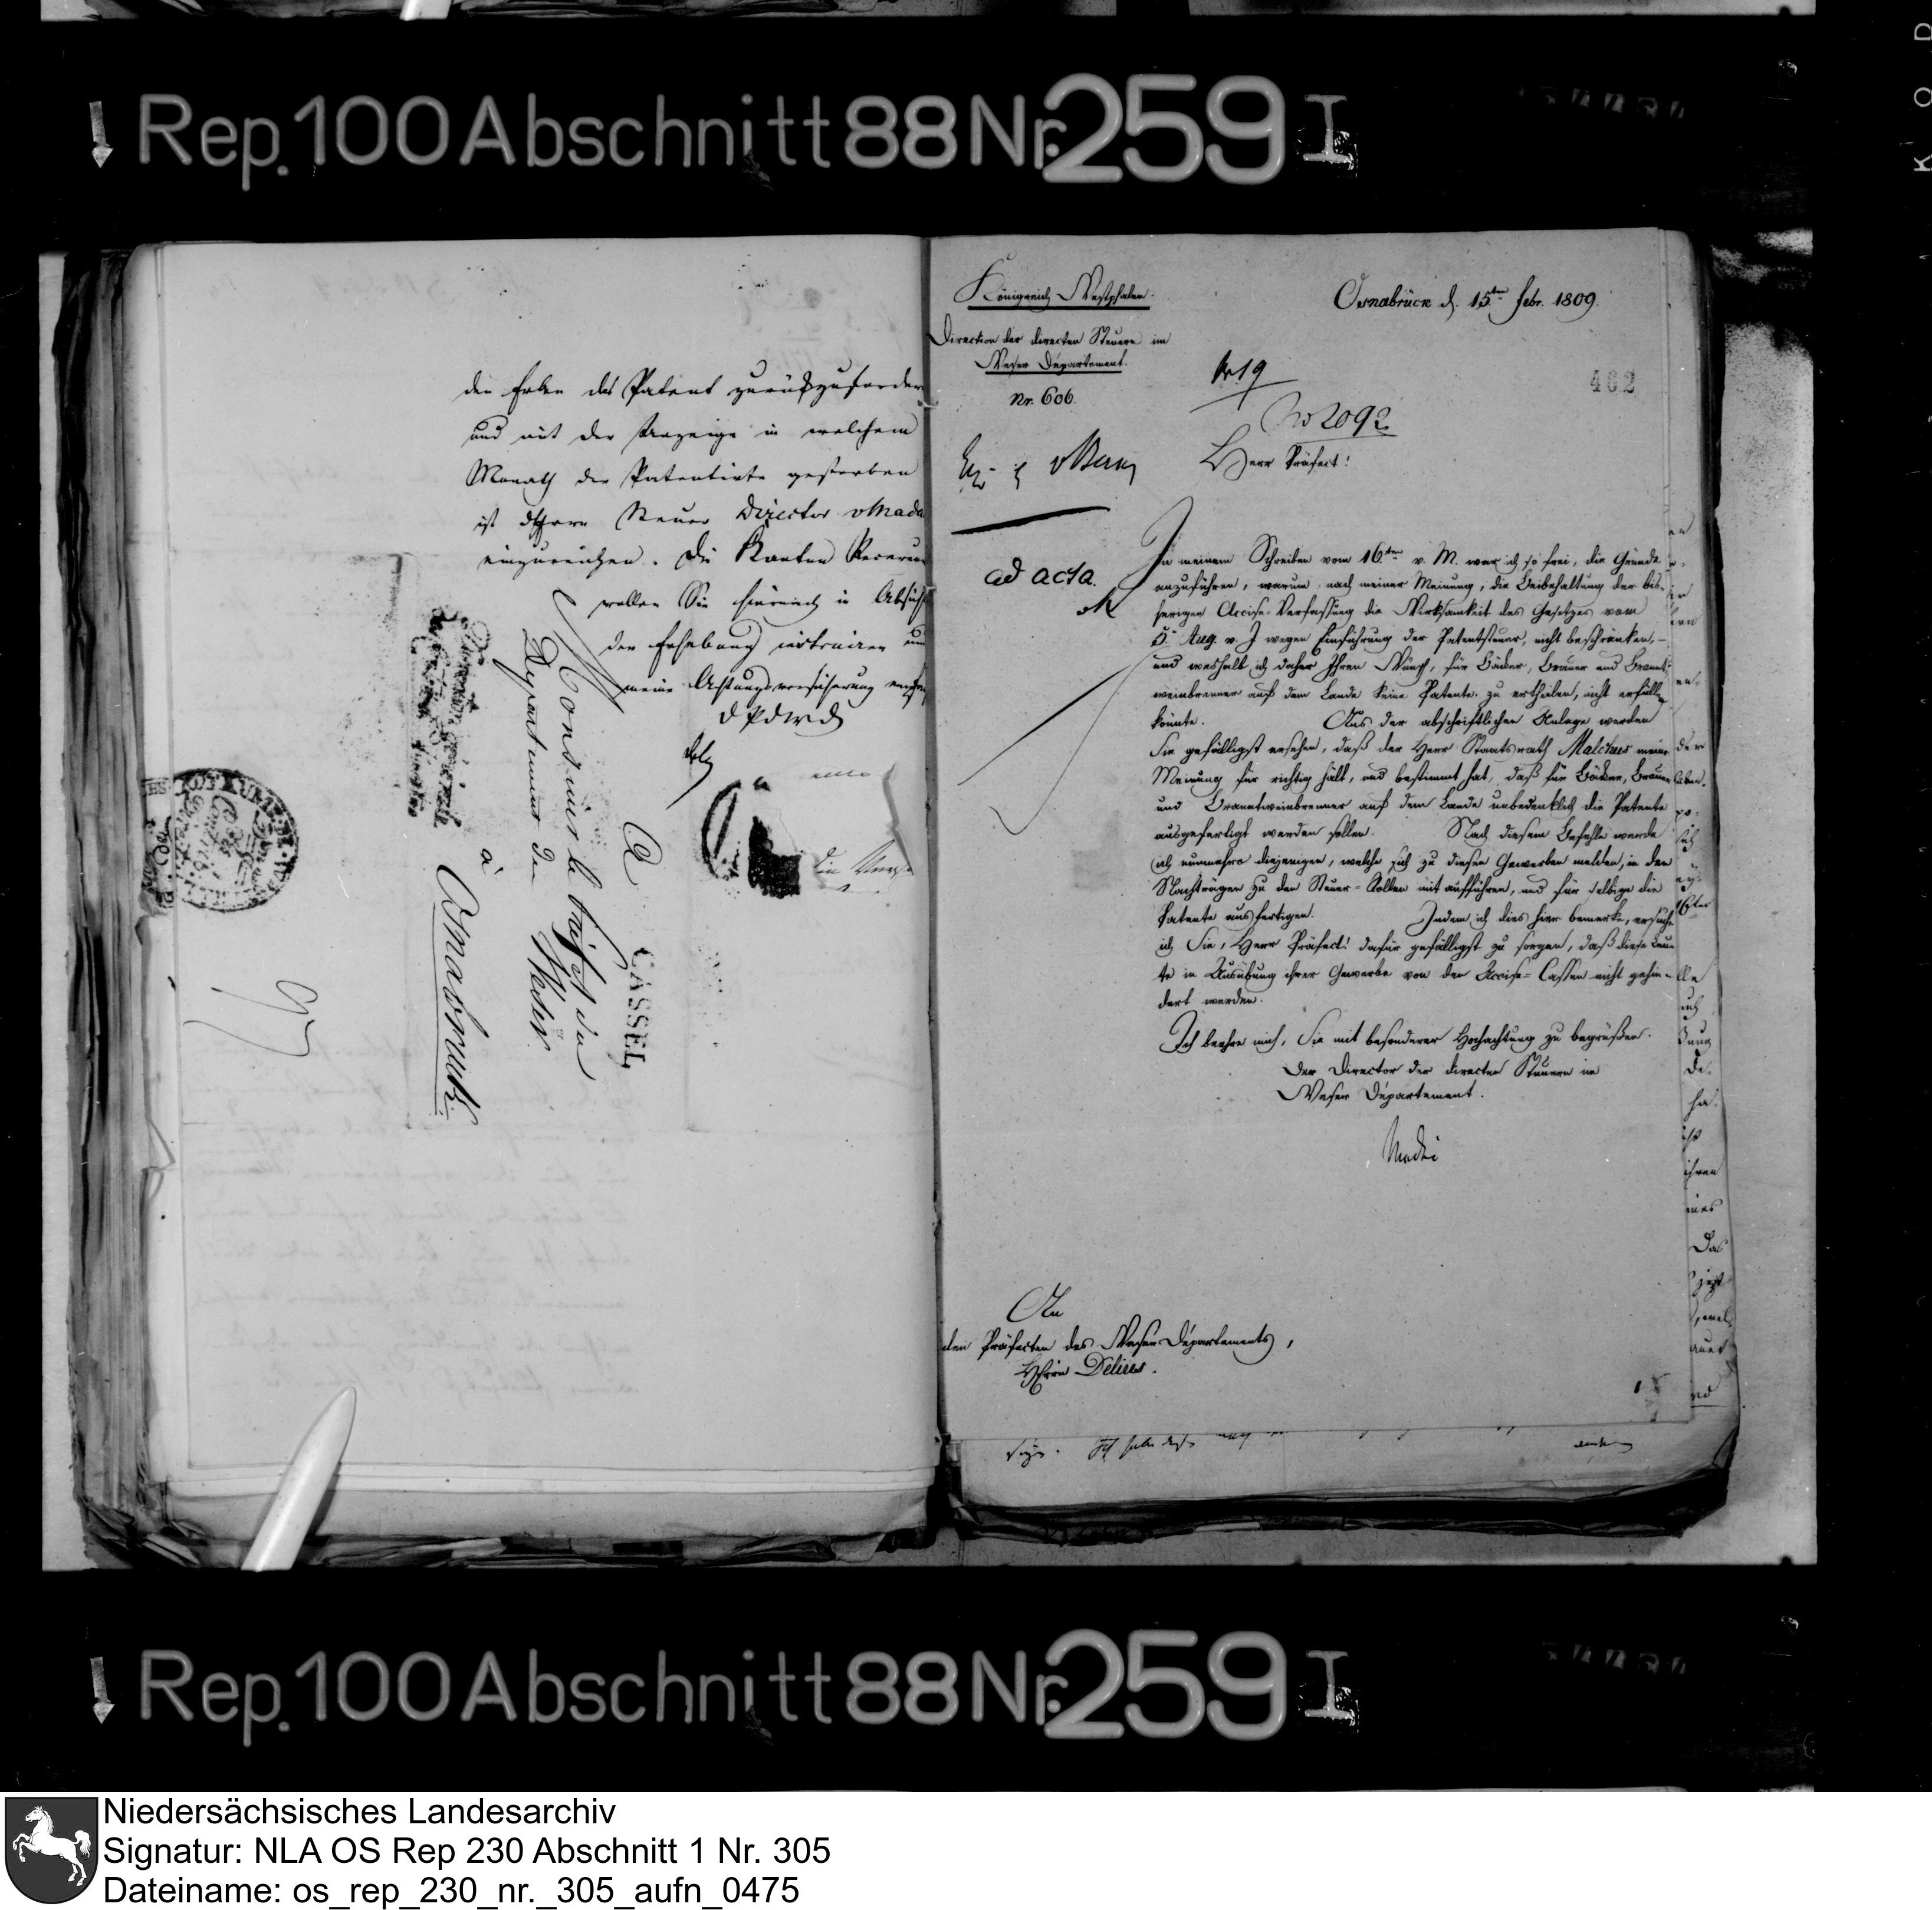 Rep. 100 Abschnitt 88 Nr. 259 I
den Erben das Patent zurückzufordern
und mit der Anzeige in welchem
Monath der Patentirte gestorben
ist dem Herrn Steuer Director
einzureichen. Die Kanton
wollen Sie hiernach in Absicht
der Erhebung instruiren und
meine Achtungsversicherung
D P d W D
A
Monsieur le Préfet du
Departement du Weser
à
Osnabruck.
CASSEL
Königreich Westphalen.
Direction der directen Steuern im
Weser Département.
Nr. 606.
Osnabrück d. 15ten Febr. 1809.
402
No 2092
Herr Präfect!
ad acta.
In meinem Schreiben vom 16ten v. M. war ich so frei, die Gründe
anzuführen, warum, nach meiner Meinung, die Beibehaltung der bis-
herigen Accise-Verfassung die Wirksamkeit des Gesetzes vom
5. Aug. v. J. wegen Einführung der Patentsteuer, nicht beschränken,
und weshalb ich daher Ihren Wunsch, für Bäcker, Brauer und Brannt-
weinbrenner auf dem Lande keine Patente zu ertheilen, nicht erfüllen
könnte. Aus der abschriftlichen Anlage werden
Sie gefälligst ersehen, daß der Herr Staatsrath Malchus meine
Meinung für richtig hält, und bestimmt hat, daß für Bäcker, Brauer
und Branntweinbrenner auf dem Lande unbedenklich die Patente
ausgefertigt werden sollen. Nach diesem Befehle werde
ich nunmehro diejenigen, welche sich zu diesen Gewerben melden, in den
Nachträgen zu den Steuer-Rollen mit aufführen, und für selbige die
Patente ausfertigen. Indem ich dies hier bemerke, ersuche
ich Sie, Herr Präfect! dafür gefälligst zu sorgen, daß diese Leu-
te in Ausübung ihrer Gewerbe von den Accise-Cassen nicht gehin-
dert werden.
Ich beehre mich, Sie mit besonderer Hochachtung zu begrüßen.
Der Director der directen Steuern im
Weser Département.
An
den Präfecten des Weser Départements,
Herrn Delius.
Rep. 100 Abschnitt 88 Nr. 259 I
Niedersächsisches Landesarchiv
Signatur: NLA OS Rep 230 Abschnitt 1 Nr. 305
Dateiname: os_rep_230_nr._305_aufn_0475